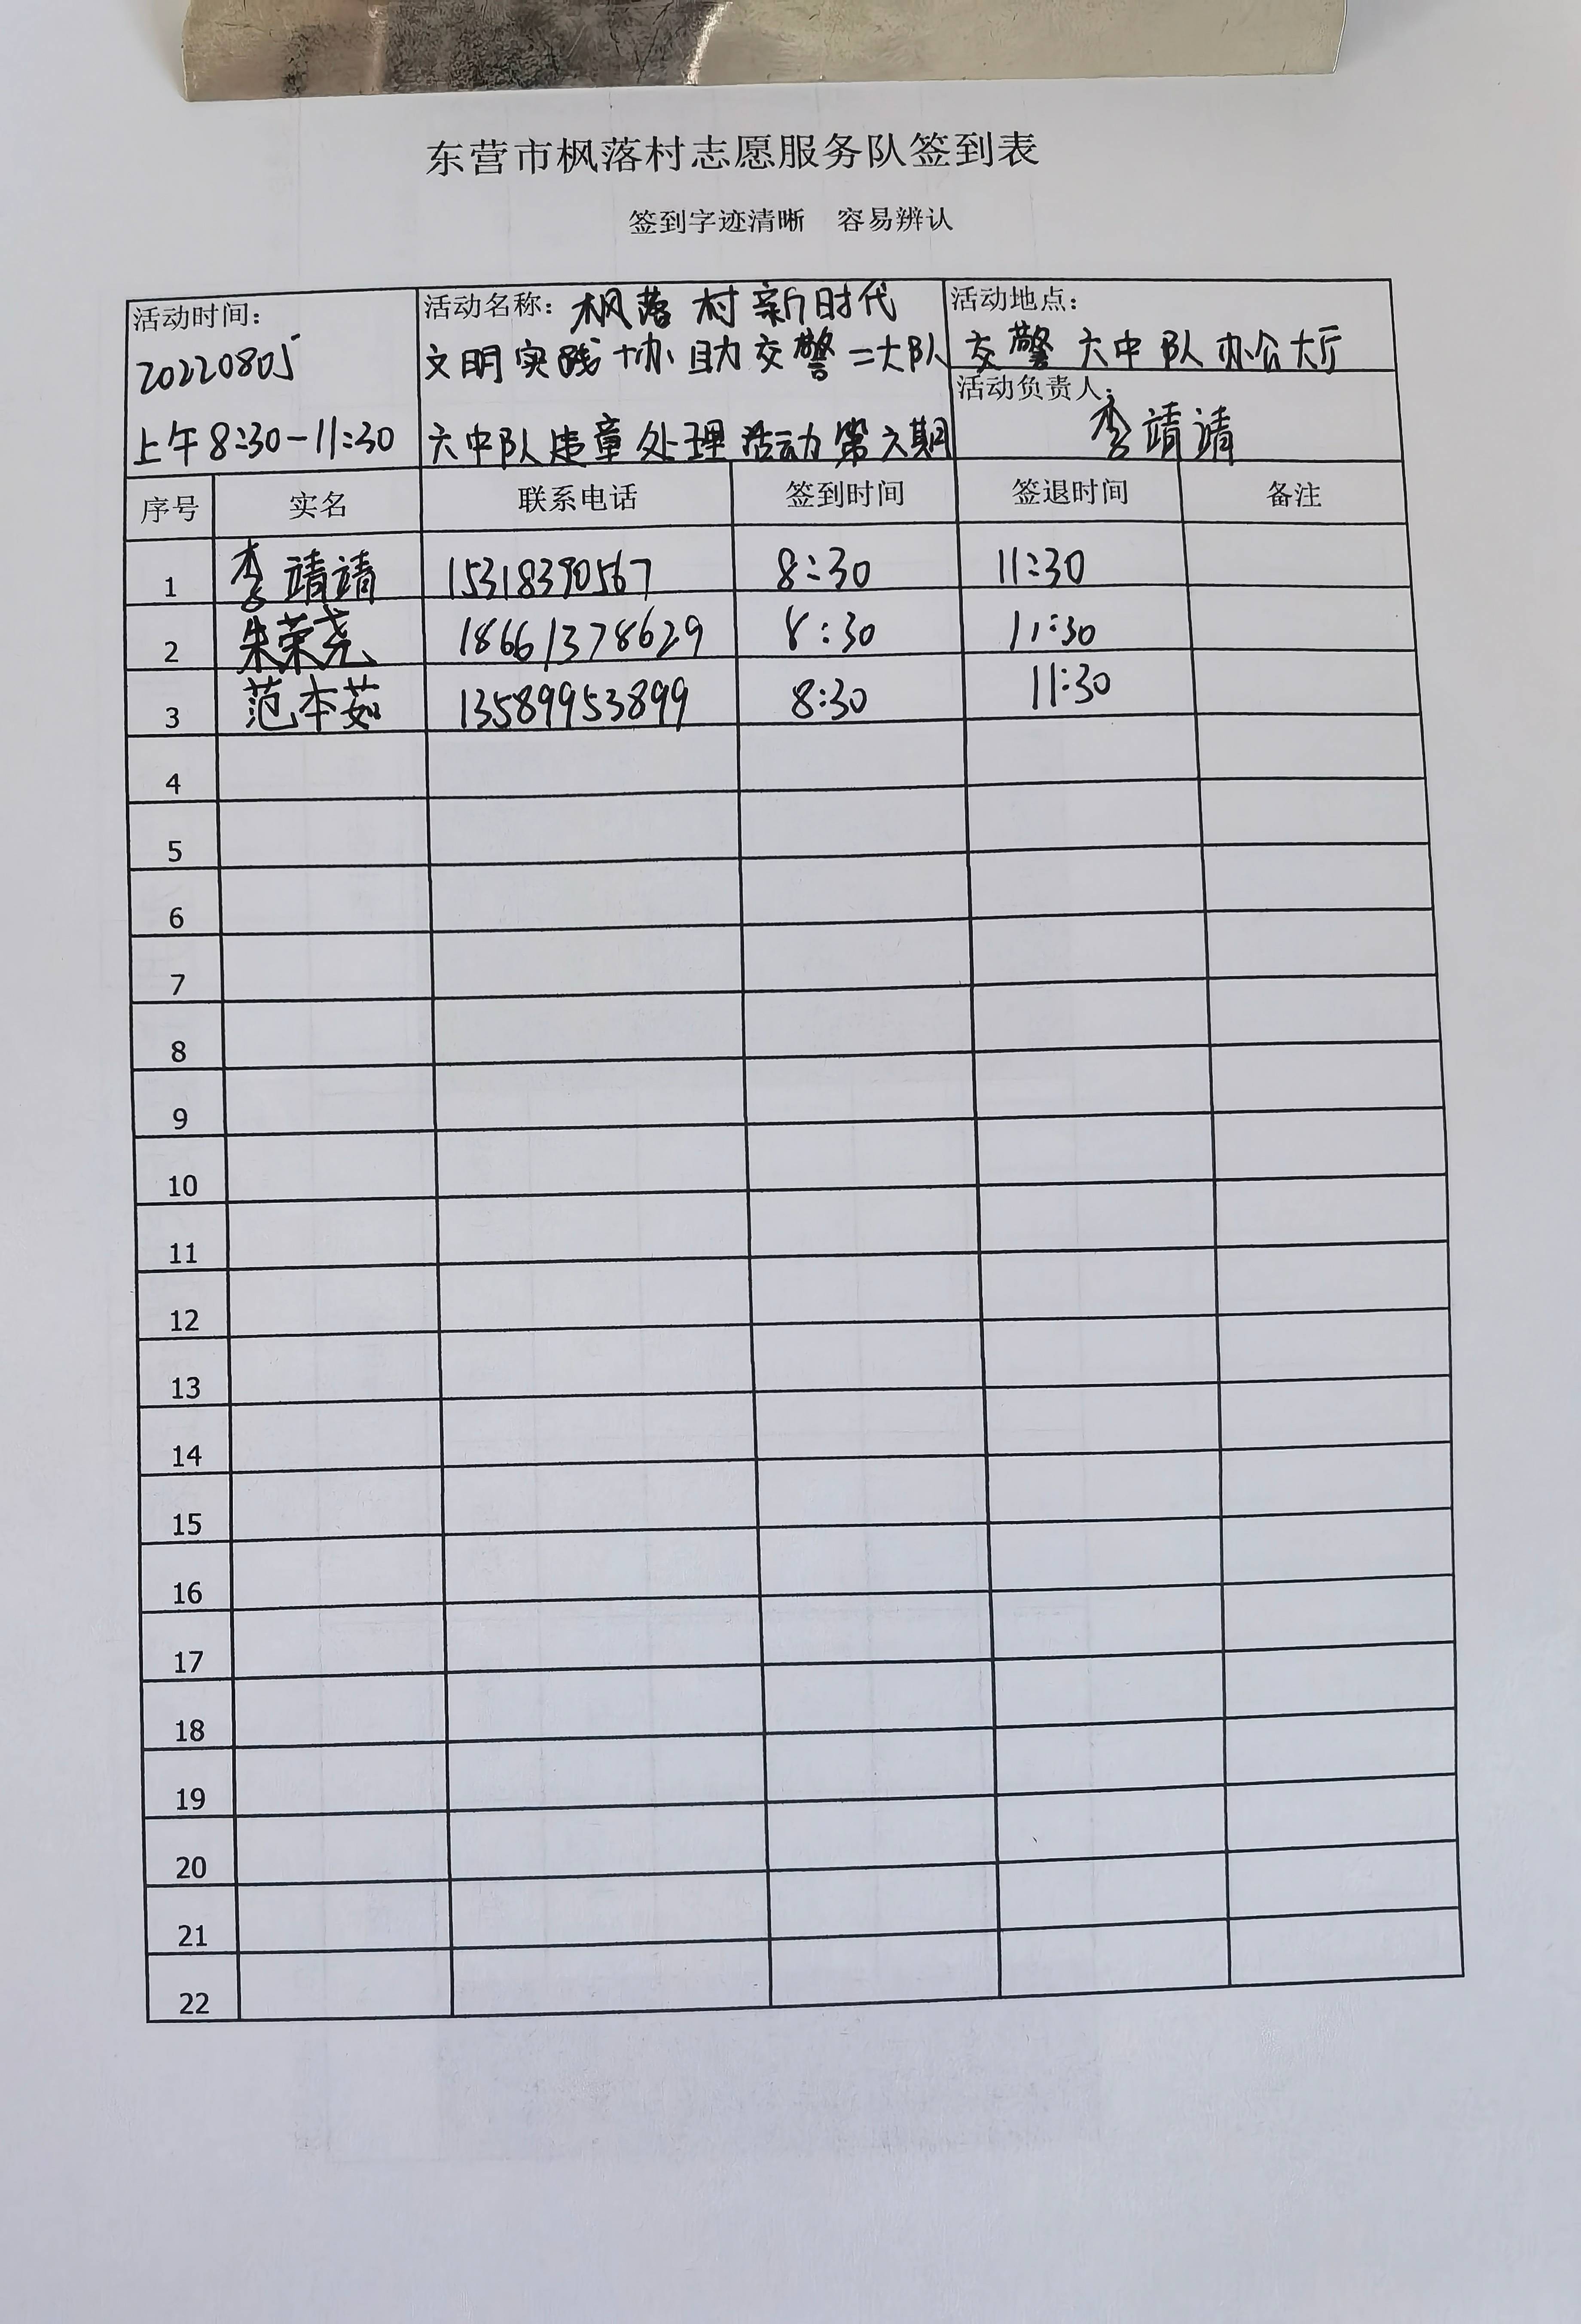 东营市枫落村志愿服务队签到表
签到字迹清晰 容易辨认
活动时间：
20220805
上午8:30-11:30
活动名称：枫落村新时代
文明实践协助交警二大队
六中队违章处理活动第六期
活动地点：
交警六中队办公大厅
活动负责人：
李靖靖
序号 实名 联系电话 签到时间 签退时间 备注
1 李靖靖 15318390567 8:30 11:30
2 朱荣尧 18661378629 8:30 11:30
3 范本茹 13589953899 8:30 11:30
4
5
6
7
8
9
10
11
12
13
14
15
16
17
18
19
20
21
22